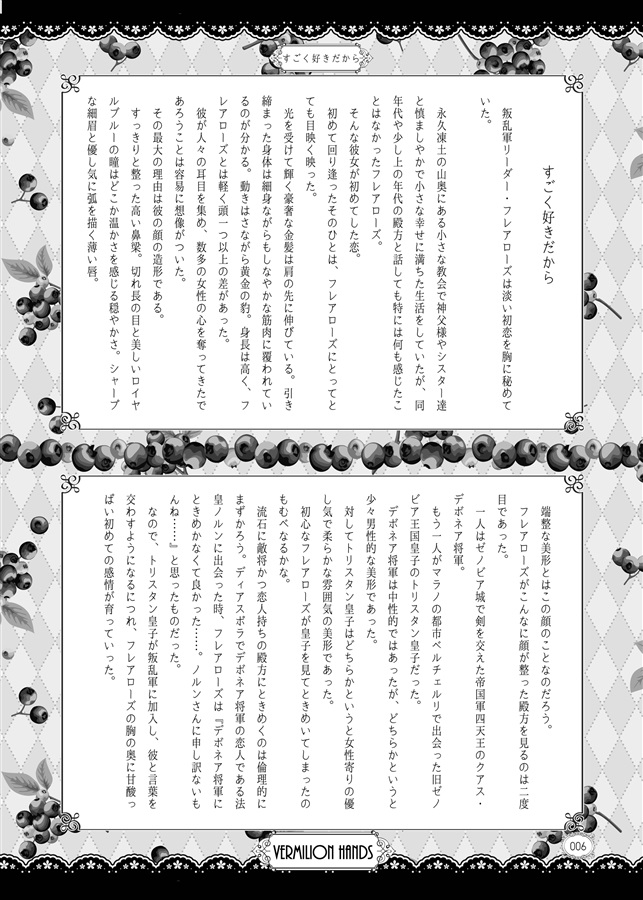 すごく好きだから
すごく好きだから
叛乱軍リーダー・フレアローズは淡い初恋を胸に秘めて
いた。
永久凍土の山奥にある小さな教会で神父様やシスター達
と慎ましやかで小さな幸せに満ちた生活をしていたが、同
年代や少し上の年代の殿方と話しても特には何も感じたこ
とはなかったフレアローズ。
そんな彼女が初めてした恋。
初めて回り逢ったそのひとは、フレアローズにとってと
ても目映く映った。
光を受けて輝く豪奢な金髪は肩の先に伸びている。引き
締まった身体は細身ながらもしなやかな筋肉に覆われてい
るのが分かる。動きはさながら黄金の豹。身長は高く、フ
レアローズとは軽く頭一つ以上の差があった。
彼が人々の耳目を集め、数多の女性の心を奪ってきたで
あろうことは容易に想像がついた。
その最大の理由は彼の顔の造形である。
すっきりと整った高い鼻梁。切れ長の目と美しいロイヤ
ルブルーの瞳はどこか温かさを感じる穏やかさ。シャープ
な細眉と優し気に弧を描く薄い唇。
端整な美形とはこの顔のことなのだろう。
フレアローズがこんなに顔が整った殿方を見るのは二度
目であった。
一人はゼノビア城で剣を交えた帝国軍四天王のクアス・
デボネア将軍。
もう一人がマラノの都市ベルチェルリで出会った旧ゼノ
ビア王国皇子のトリスタン皇子だった。
デボネア将軍は中性的ではあったが、どちらかというと
少々男性的な美形であった。
対してトリスタン皇子はどちらかというと女性寄りの優
し気で柔らかな雰囲気の美形であった。
初心なフレアローズが皇子を見てときめいてしまったの
もむべなるかな。
流石に敵将かつ恋人持ちの殿方にときめくのは倫理的に
まずかろう。ディアスポラでデボネア将軍の恋人である法
皇ノルンに出会った時、フレアローズは『デボネア将軍に
ときめかなくて良かった……。ノルンさんに申し訳ないも
んね……』と思ったものだった。
なので、トリスタン皇子が叛乱軍に加入し、彼と言葉を
交わすようになるにつれ、フレアローズの胸の奥に甘酸っ
ぱい初めての感情が育っていった。
VERMILION HANDS
006